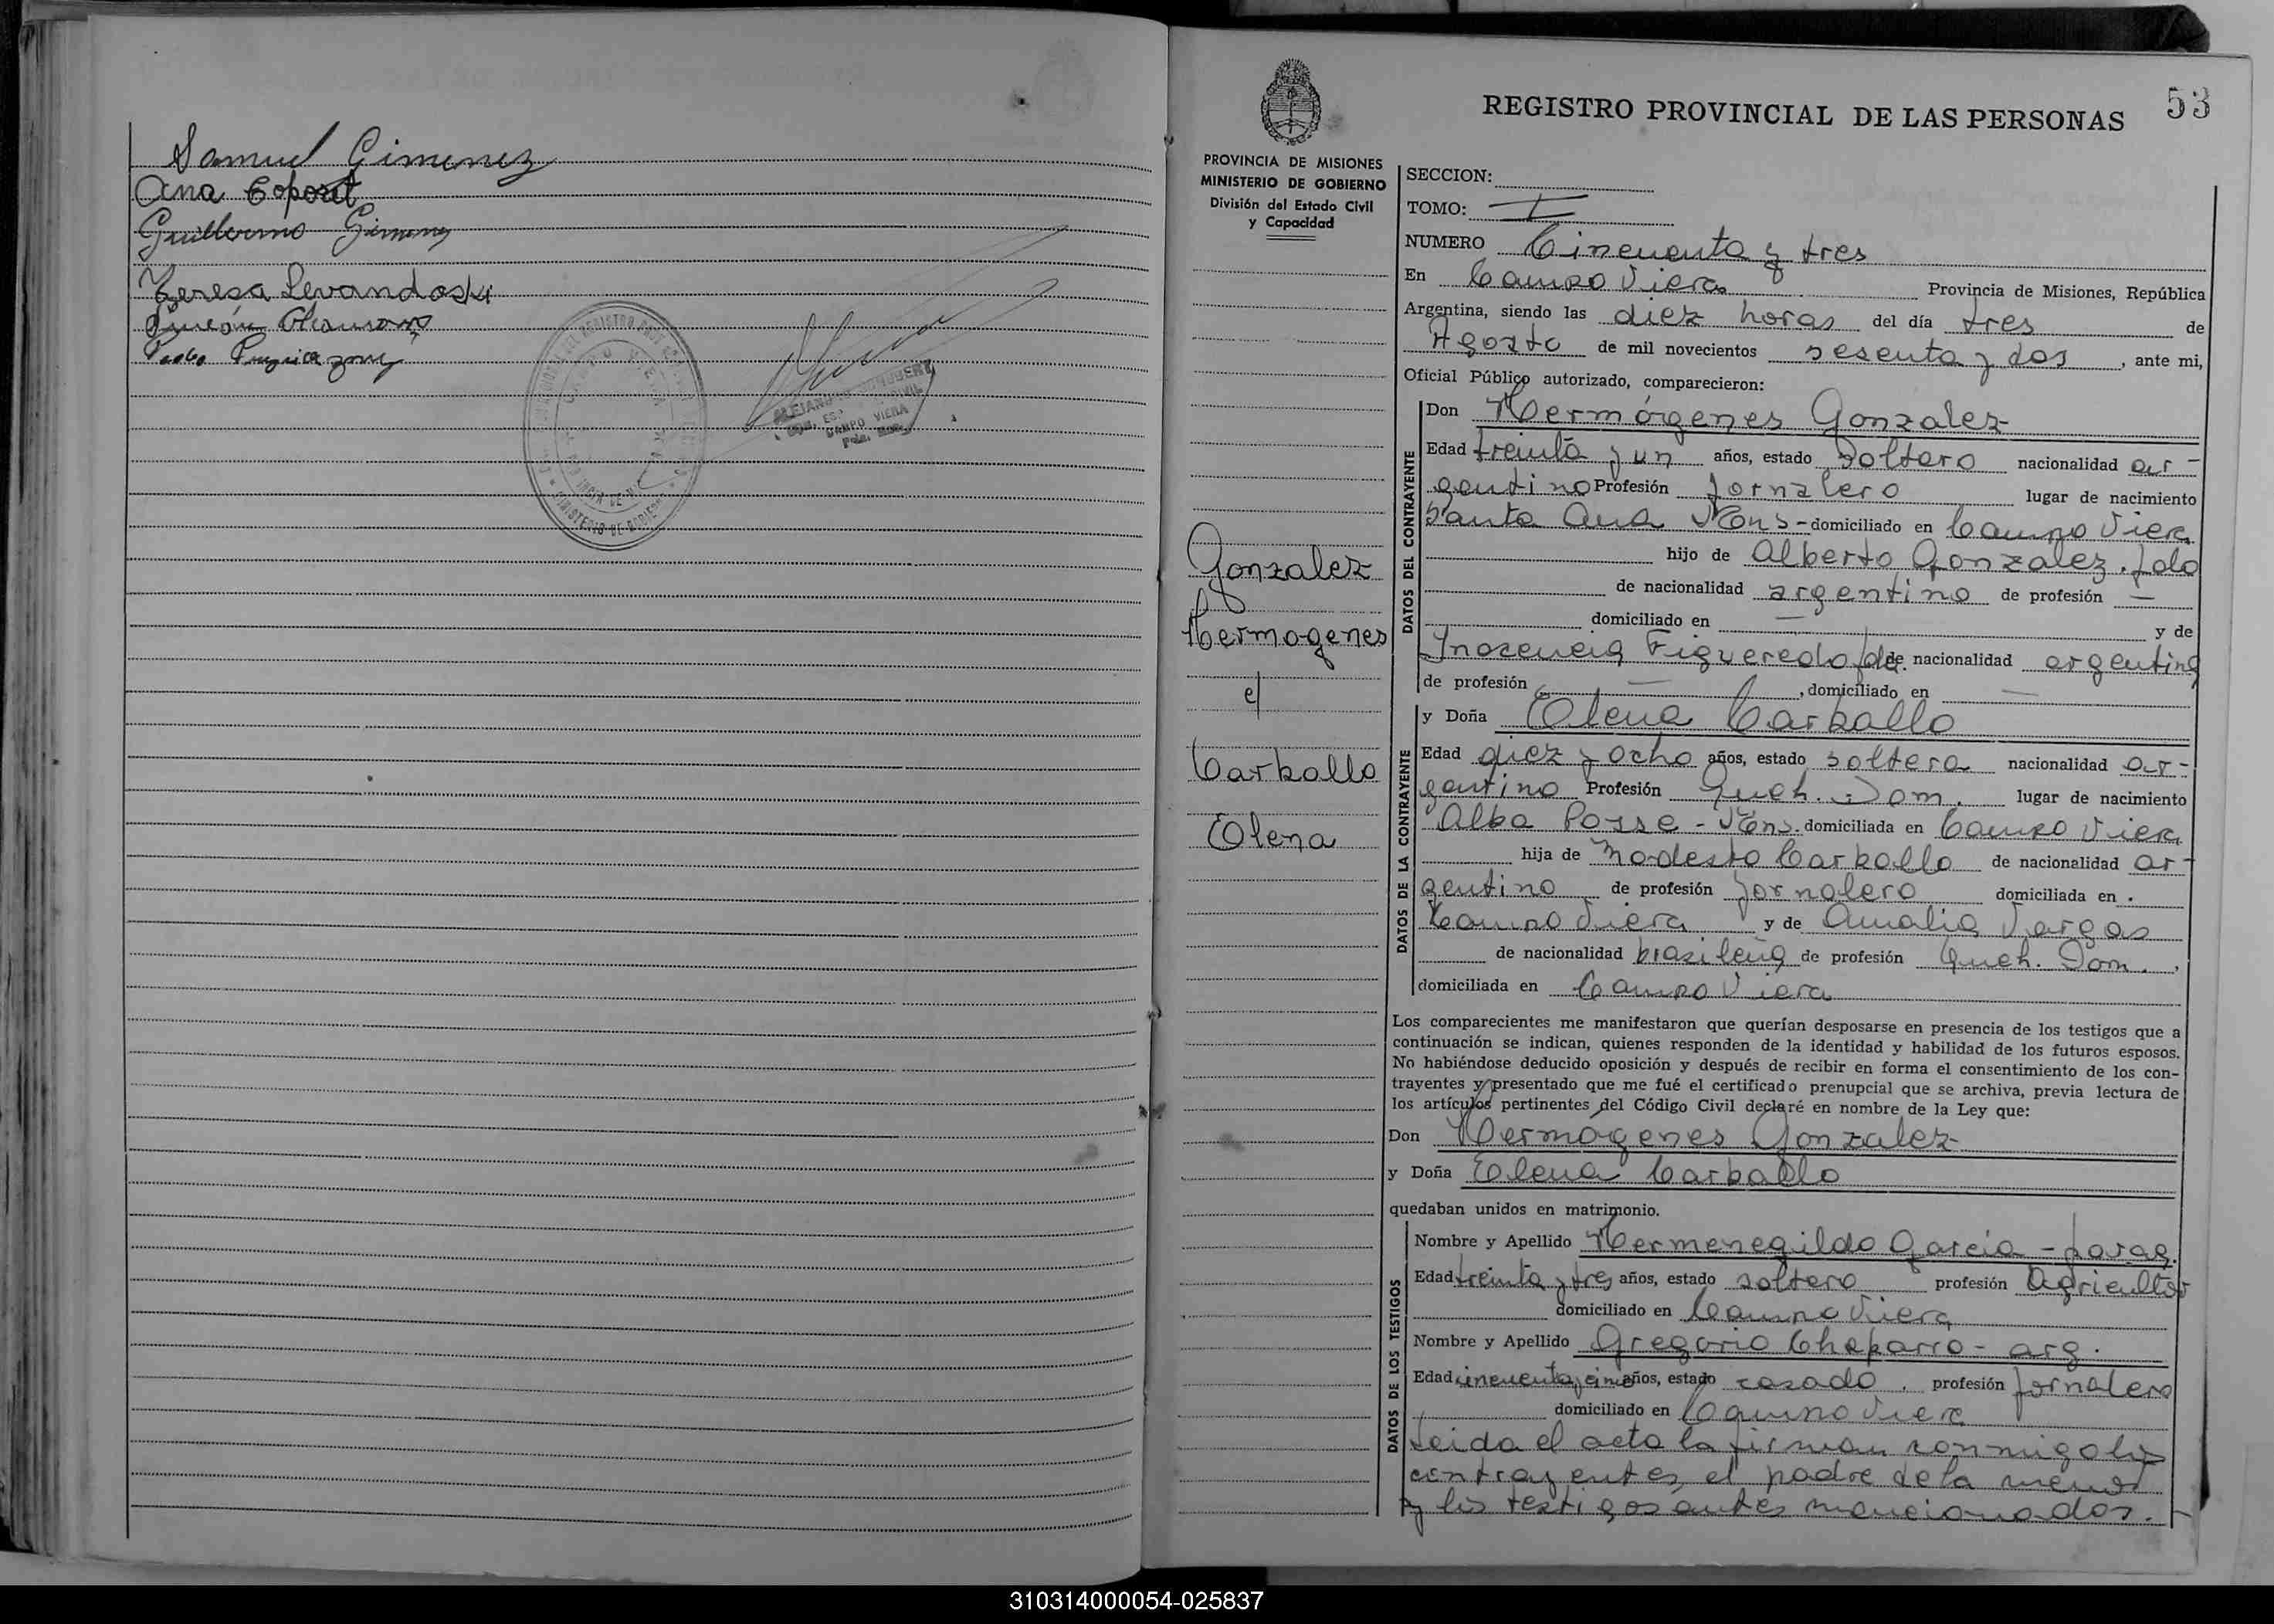 Samuel Gimenez
Ana Coposet
Guillermo Gimenez
Teresa Levandoski
CAMPO VIERA
MINISTERIO DE GOBIERNO
CAMPO VIERA
53
REGISTRO PROVINCIAL DE LAS PERSONAS
PROVINCIA DE MISIONES
MINISTERIO DE GOBIERNO
División del Estado Civil
y Capacidad
Gonzalez
Hermogenes
c/
Carballo
Elena
SECCION:
TOMO: I
NUMERO Cincuenta y tres
En Campo Viera Provincia de Misiones, República
Argentina, siendo las diez horas del día tres de
Agosto de mil novecientos sesenta y dos, ante mi,
Oficial Público autorizado, comparecieron:
DATOS DEL CONTRAYENTE
Don Hermógenes Gonzalez
Edad treinta y un años, estado Soltero nacionalidad ar-
gentino Profesión Jornalero lugar de nacimiento
Santa Ana Mons- domiciliado en Campo Viera
hijo de Alberto Gonzalez. fdo
de nacionalidad argentino de profesión —
domiciliado en — y de
Inocencia Figueredo fda. de nacionalidad argentina
de profesión —, domiciliado en —
DATOS DE LA CONTRAYENTE
y Doña Elena Carballo
Edad diez y ocho años, estado soltera nacionalidad ar-
gentino Profesión Queh. Dom. lugar de nacimiento
Alba Posse - Mons. domiciliada en Campo Viera
hija de Modesto Carballo de nacionalidad ar-
gentino de profesión Jornalero domiciliada en
Campo Viera y de Amalia Vargas
de nacionalidad brasileña de profesión Queh. Dom.,
domiciliada en Campo Viera
Los comparecientes me manifestaron que querían desposarse en presencia de los testigos que a
continuación se indican, quienes responden de la identidad y habilidad de los futuros esposos.
No habiéndose deducido oposición y después de recibir en forma el consentimiento de los con-
trayentes y presentado que me fué el certificado prenupcial que se archiva, previa lectura de
los artículos pertinentes del Código Civil declaré en nombre de la Ley que:
Don Hermogenes Gonzalez
y Doña Elena Carballo
quedaban unidos en matrimonio.
DATOS DE LOS TESTIGOS
Nombre y Apellido Hermenegildo Garcia - parag.
Edad treinta y tres años, estado soltero profesión Agricultor
domiciliado en Campo Viera
Nombre y Apellido Gregorio Chaparro - arg.
Edad cincuenta y cinco años, estado casado, profesión Jornalero
domiciliado en Campo Viera
Leida el acta la firman conmigo los
contrayentes, el padre de la menor
y los testigos antes mencionados.-
310314000054-025837